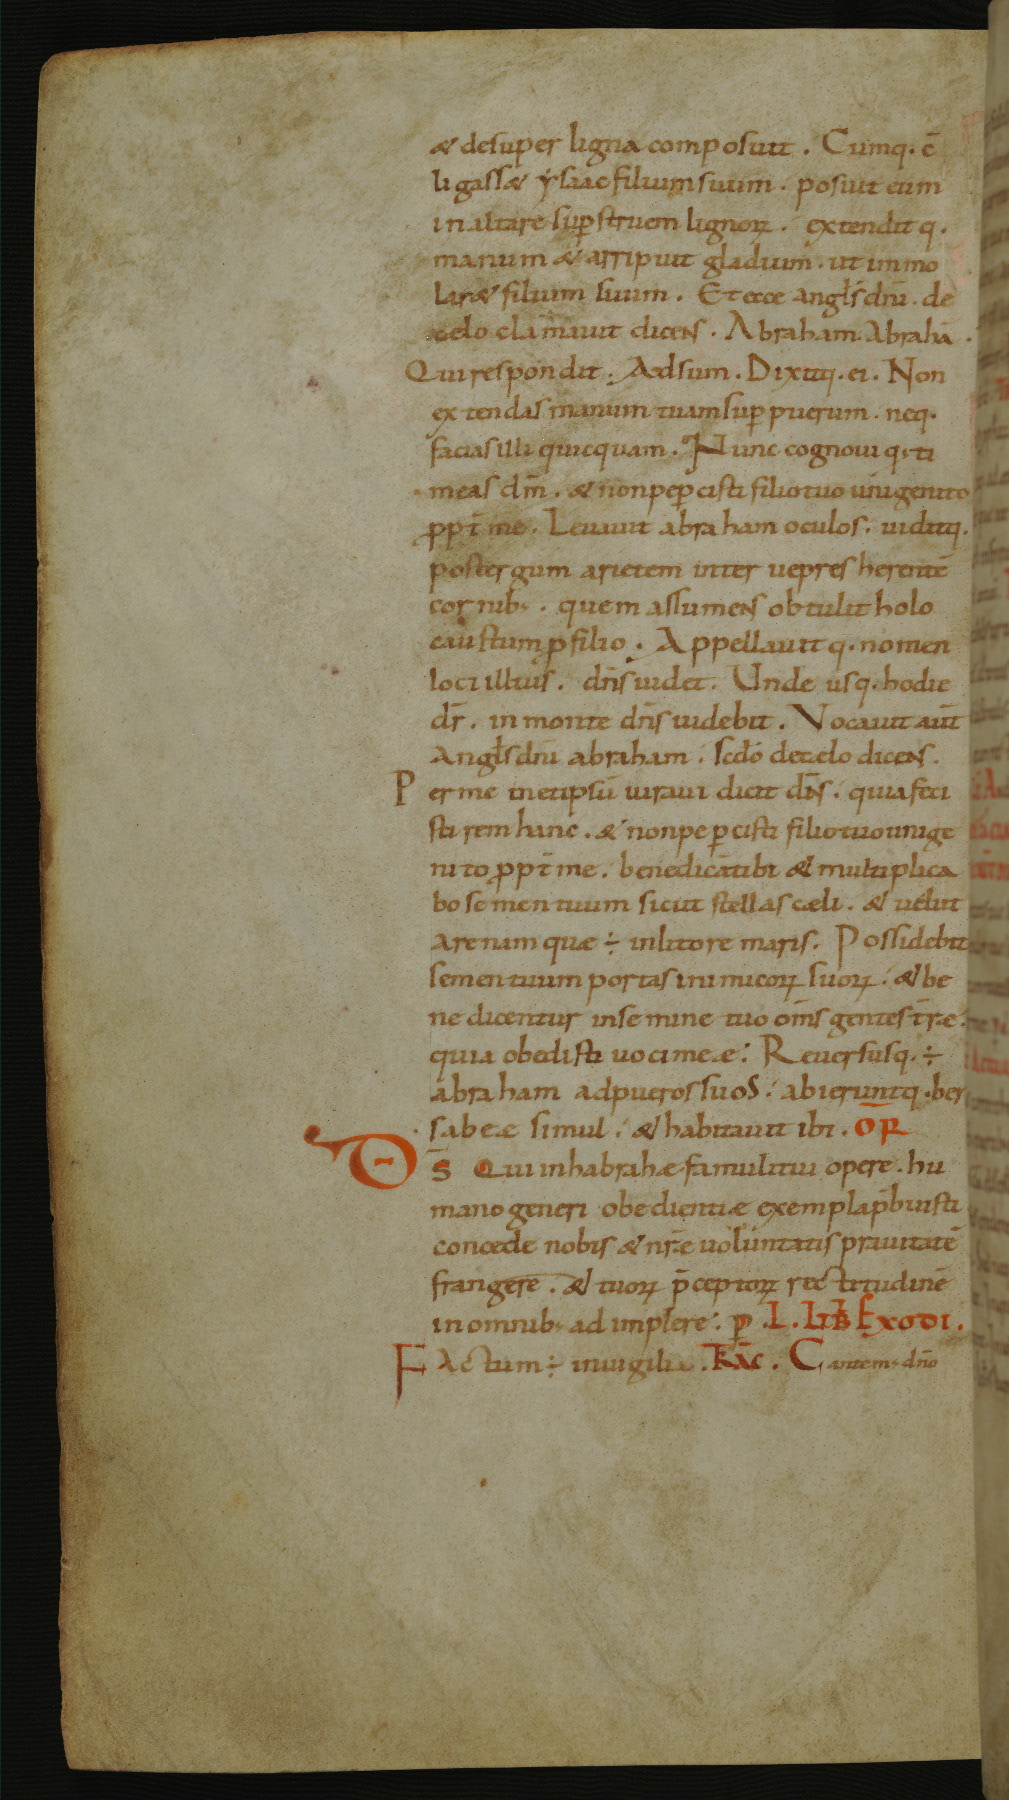 & desuper ligna composuit . Cumq. cō
ligass& ysaac filium suum . posuit eum
in altare sup struem lignoꝝ . extenditq.
manum & arripuit gladium . ut immo
lar& filium suum . Et ecce angls dnī . de
celo clamauit dicens . Abraham Abrahā .
Qui respondit . Adsum . Dixitq. ei . Non
extendas manum tuam sup puerum . neq.
facias illi quicquam . Nunc cognoui q; ti
meas dm̄ . & non pepcisti filio tuo unigenito
ppt̄ me . Leuauit abraham oculos . uiditq.
post tergum arietem inter uepres herentē
cornib; . quem assumens obtulit holo
caustum p filio . Appellauitq. nomen
loci illius . dn̄s uidet . Unde usq. hodie
dr̄ . in monte dn̄s uidebit . Vocauit aut̄
Angls dnī abraham . scdo de celo dicens .
Per me metipsū iuraui dicit dn̄s . quia feci
sti rem hanc . & non pepcisti filio tuo unige
nito ppt̄ me . benedicā tibi & multiplica
bo semen tuum sicut stellas cæli . & uelut
Arenam quæ ÷ in litore maris . Possidebit
semen tuum portas inimicoꝝ suoꝝ . & be
nedicentur in semine tuo om̄s gentes t̄ræ .
quia obedisti uoci meæ . Reuersusq. ÷
abraham ad pueros suos . abieruntq. ber
sabeæ simul . & habitauit ibi . OR̄
Ds̄ Qui in habrahæ famulitui opere . hu
mano generi obedientiæ exempla p̄buisti
concede nobis & nr̄e uoluntatis prauitatē
frangere . & tuoꝝ p̄ceptoꝝ rectitudinē
in omnib; adimplere . p . L . LIB Exodi .
Factum ÷ in uigilia . KAC . Cantem; dn̄o